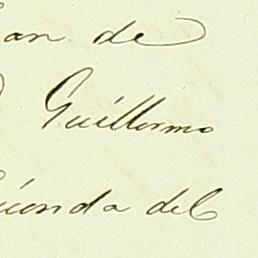 an de
Guillermo
ionda del